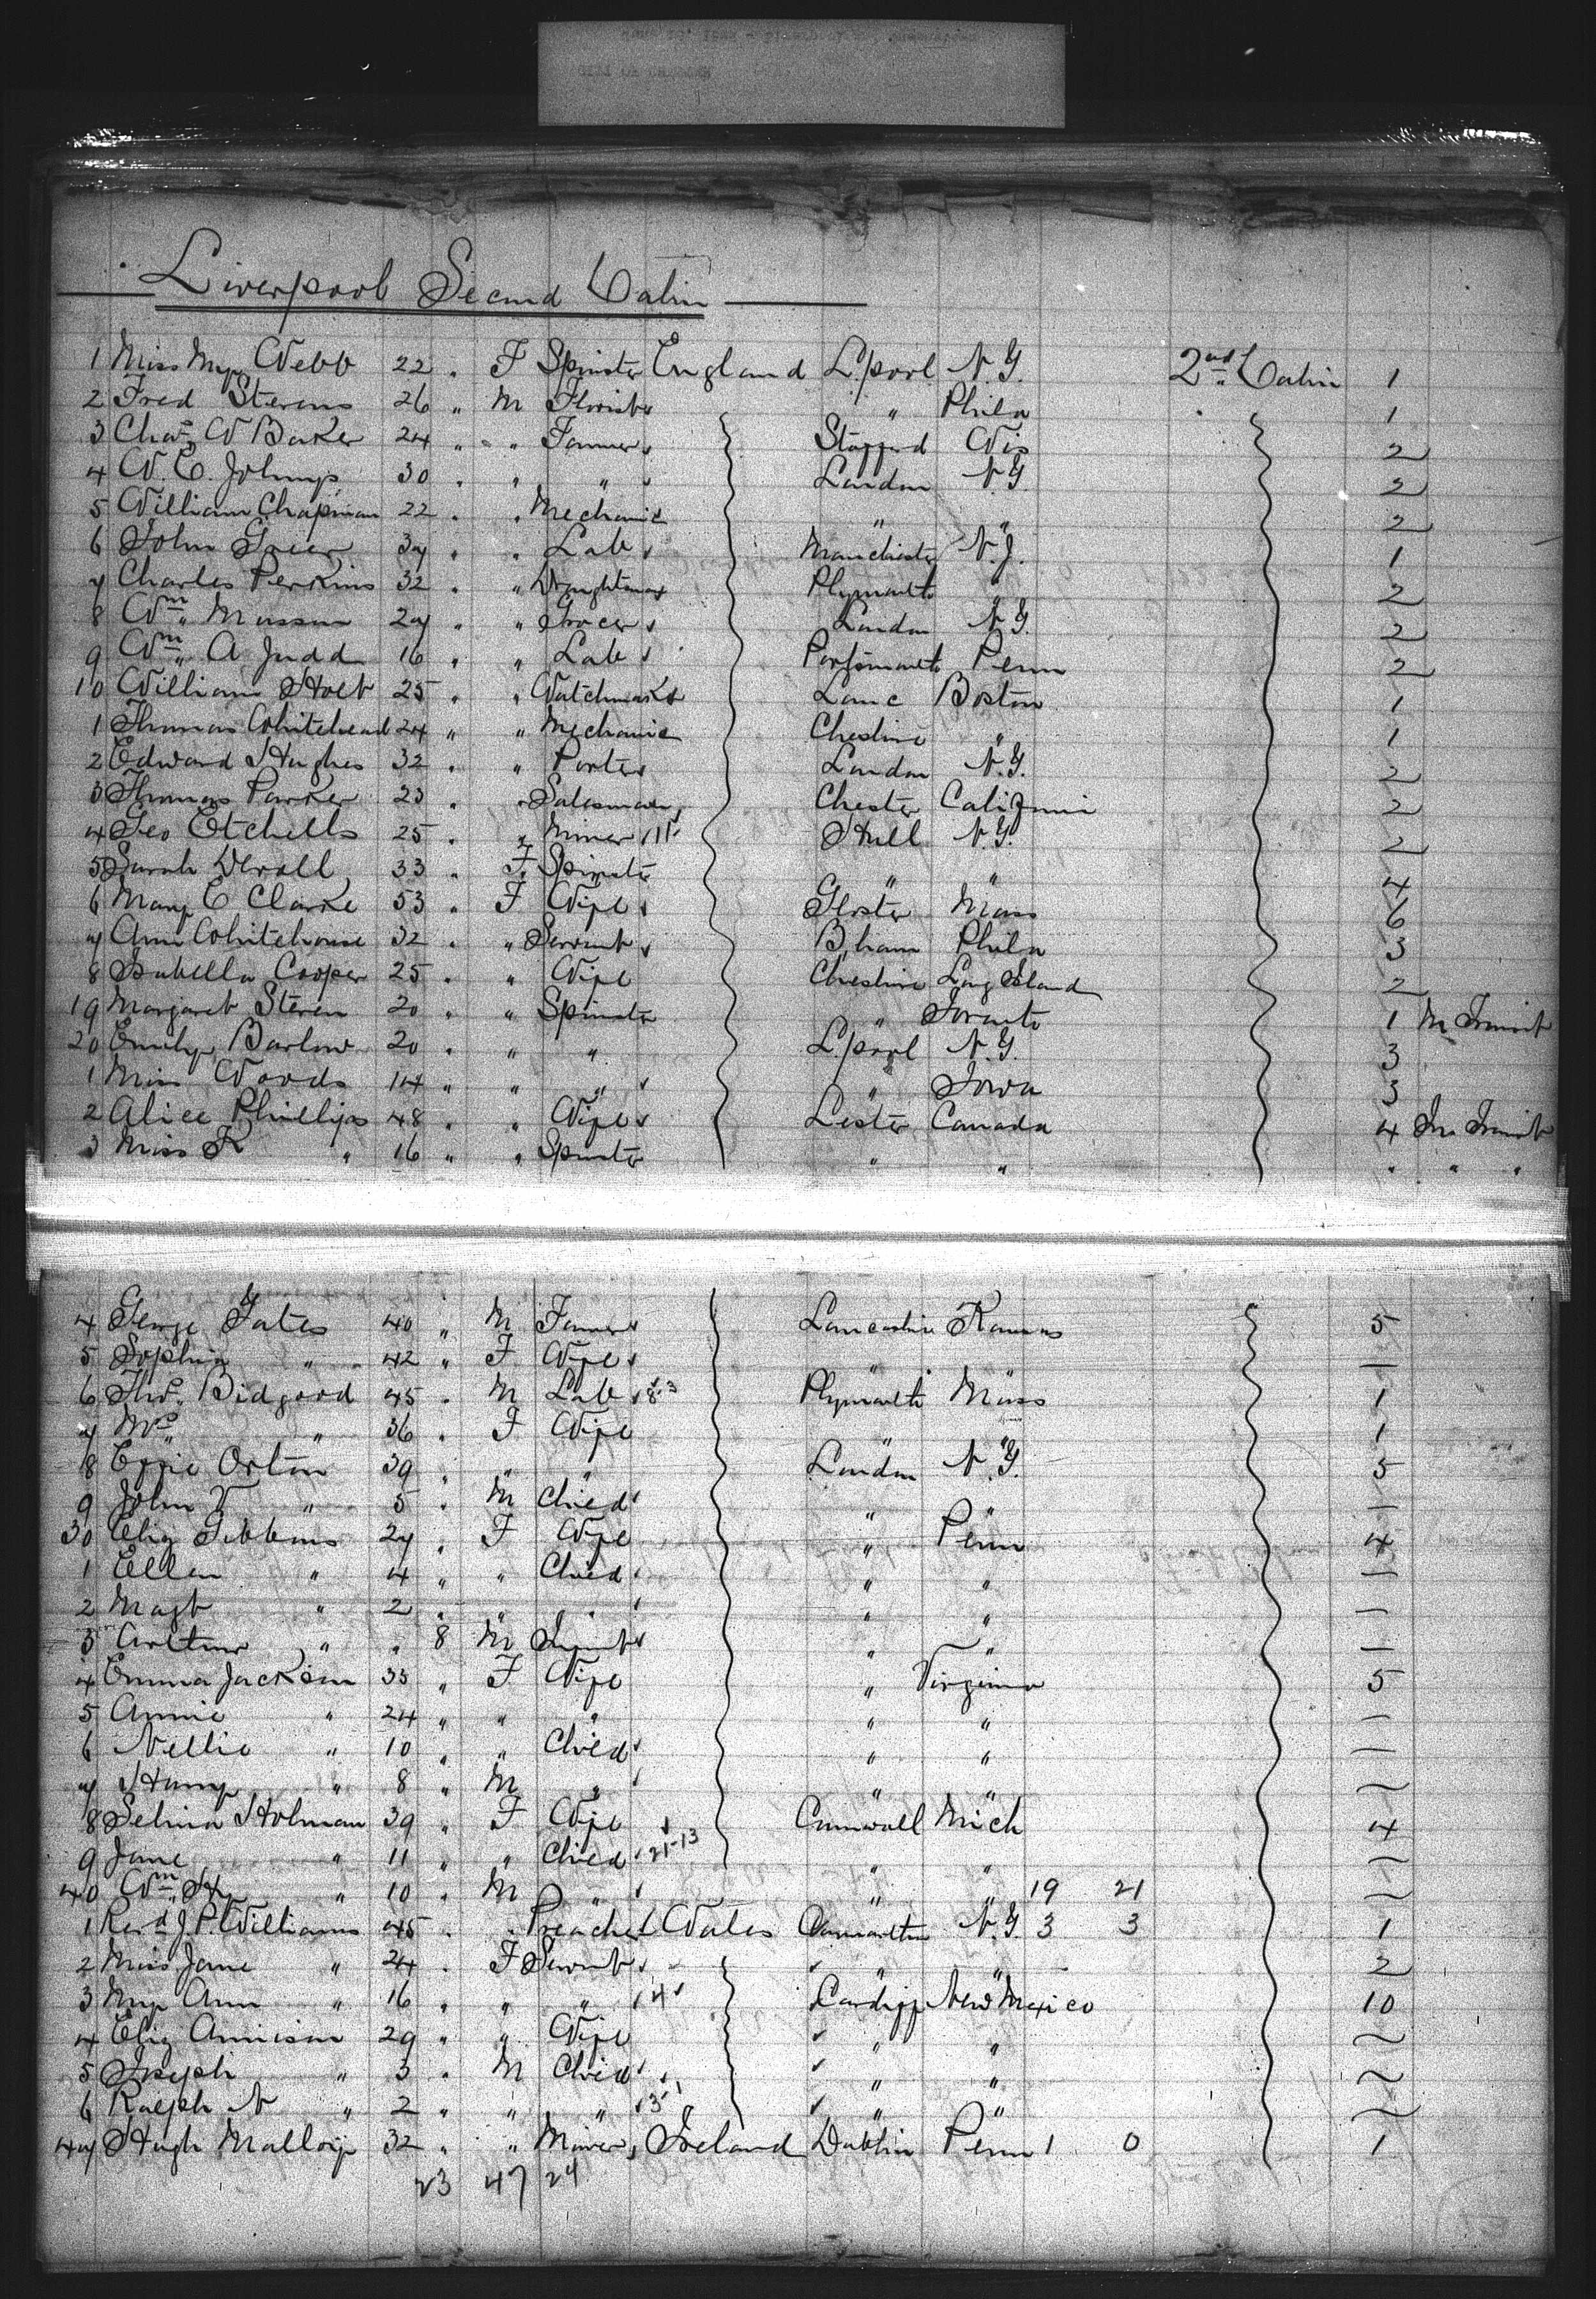 Liverpool Second Cabin
1 Miss My Webb 22 " F Spinster England L.pool N.Y. 2nd Cabin 1
2 Fred Stevens 26 " M Florist " Phila 1
3 Chas W Baker 24 " " Farmer Stafford Wis 2
4 W. C. Johnnp 30 " " " London N.Y. 2
5 William Chapman 22 " " Mechanic " " 2
6 John Greer 37 " " Lab Manchester N.J. 1
7 Charles Perkins 32 " " Draughtsman Plymouth " 2
8 Wm Musson 27 " " Grocer London N.Y. 2
9 Wm A Judd 16 " " Lab Portsmouth Penn 2
10 William Holt 25 " " Watchmaker Lanc Boston 1
1 Thomas Whitehead 24 " " Mechanic Cheshire " 1
2 Edward Hughes 32 " " Porter London N.Y. 2
3 Thomas Parker 23 " " Salesman Chester California 2
4 Geo Etchells 25 " " Miner 11 Hull N.Y. 2
5 Sarah Worall 33 " F Spinster " " 4
6 Mary E Clarke 53 " F Wife Gloster Mass 6
7 Ann Whitehouse 32 " " Servant B,ham Phila 3
8 Isabella Cooper 25 " " Wife Cheshire Long Island 2
19 Margaret Steven 20 " " Spinster " Toronto 1 In Transit
20 Emily Barlow 20 " " " L.pool N.Y. 3
1 Miss Woods 14 " " " " Iowa 3
2 Alice Phillips 48 " " Wife Lester Canada 4 In Transit
3 Miss K " 16 " " Spinster " " " " "
4 George Yates 40 " M Farmer Lancashire Kansas 5
5 Sophia " 42 " F Wife " " —
6 Thos. Bidgood 45 " M Lab 8-3 Plymouth Mass 1
7 Mrs " 36 " F Wife " " 1
8 Effie Orton 39 " " " London N.Y. 5
9 John V " 5 " M Child " " —
30 Eliz Gibbons 27 " F Wife " Penn 4
1 Ellen " 4 " " Child " " —
2 Magt " 2 " " " " " —
3 Arthur " " 8 M Infant " " —
4 Emma Jackson 35 " F Wife " Virginia 5
5 Annie " 24 " " " " " —
6 Nellie " 10 " " Child " " —
7 Harry " 8 " M " " " —
8 Selina Holman 39 " F Wife Cornwall Mich 4
9 Jane " 11 " " Child 21-13 " " —
40 Wm H " 10 " M " " " 19 21 —
1 Revd J. P. Williams 45 " " Preacher Wales Carmarthen N.Y. 3 3 1
2 Miss Jane " 24 " F Servant " " 2
3 My Ann " 16 " " " 4 Cardiff New Mexico 10
4 Eliz Annison 29 " " Wife " " —
5 Joseph " 3 " M Child " " —
6 Ralph N " 2 " " " 3-1 " " —
47 Hugh Malloy 32 " " Miner Ireland Dublin Penn 1 0 1
23 47 24